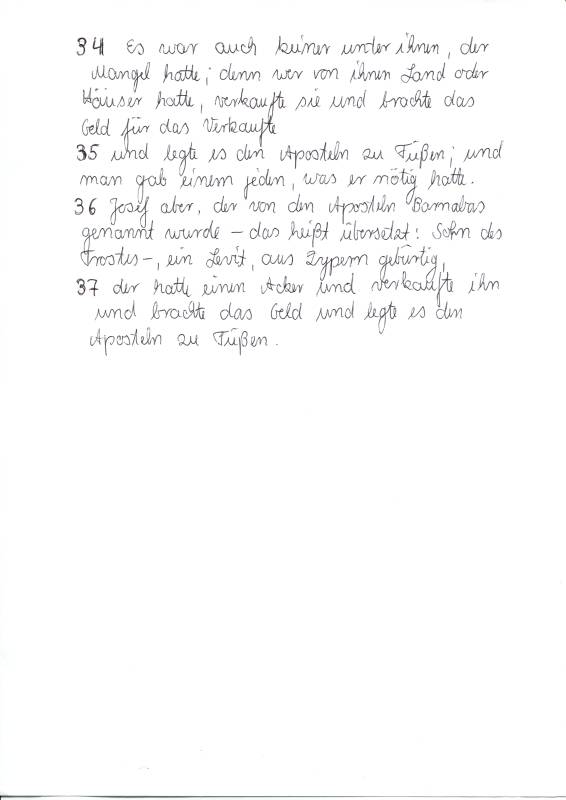 34 Es war auch keiner unter ihnen, der
Mangel hatte; denn wer von ihnen Land oder
Häuser hatte, verkaufte sie und brachte das
Geld für das Verkaufte
35 und legte es den Aposteln zu Füßen; und
man gab einem jeden, was er nötig hatte.
36 Josef aber, der von den Aposteln Barnabas
genannt wurde – das heißt übersetzt: Sohn des
Trostes –, ein Levit, aus Zypern gebürtig,
37 der hatte einen Acker und verkaufte ihn
und brachte das Geld und legte es den
Aposteln zu Füßen.